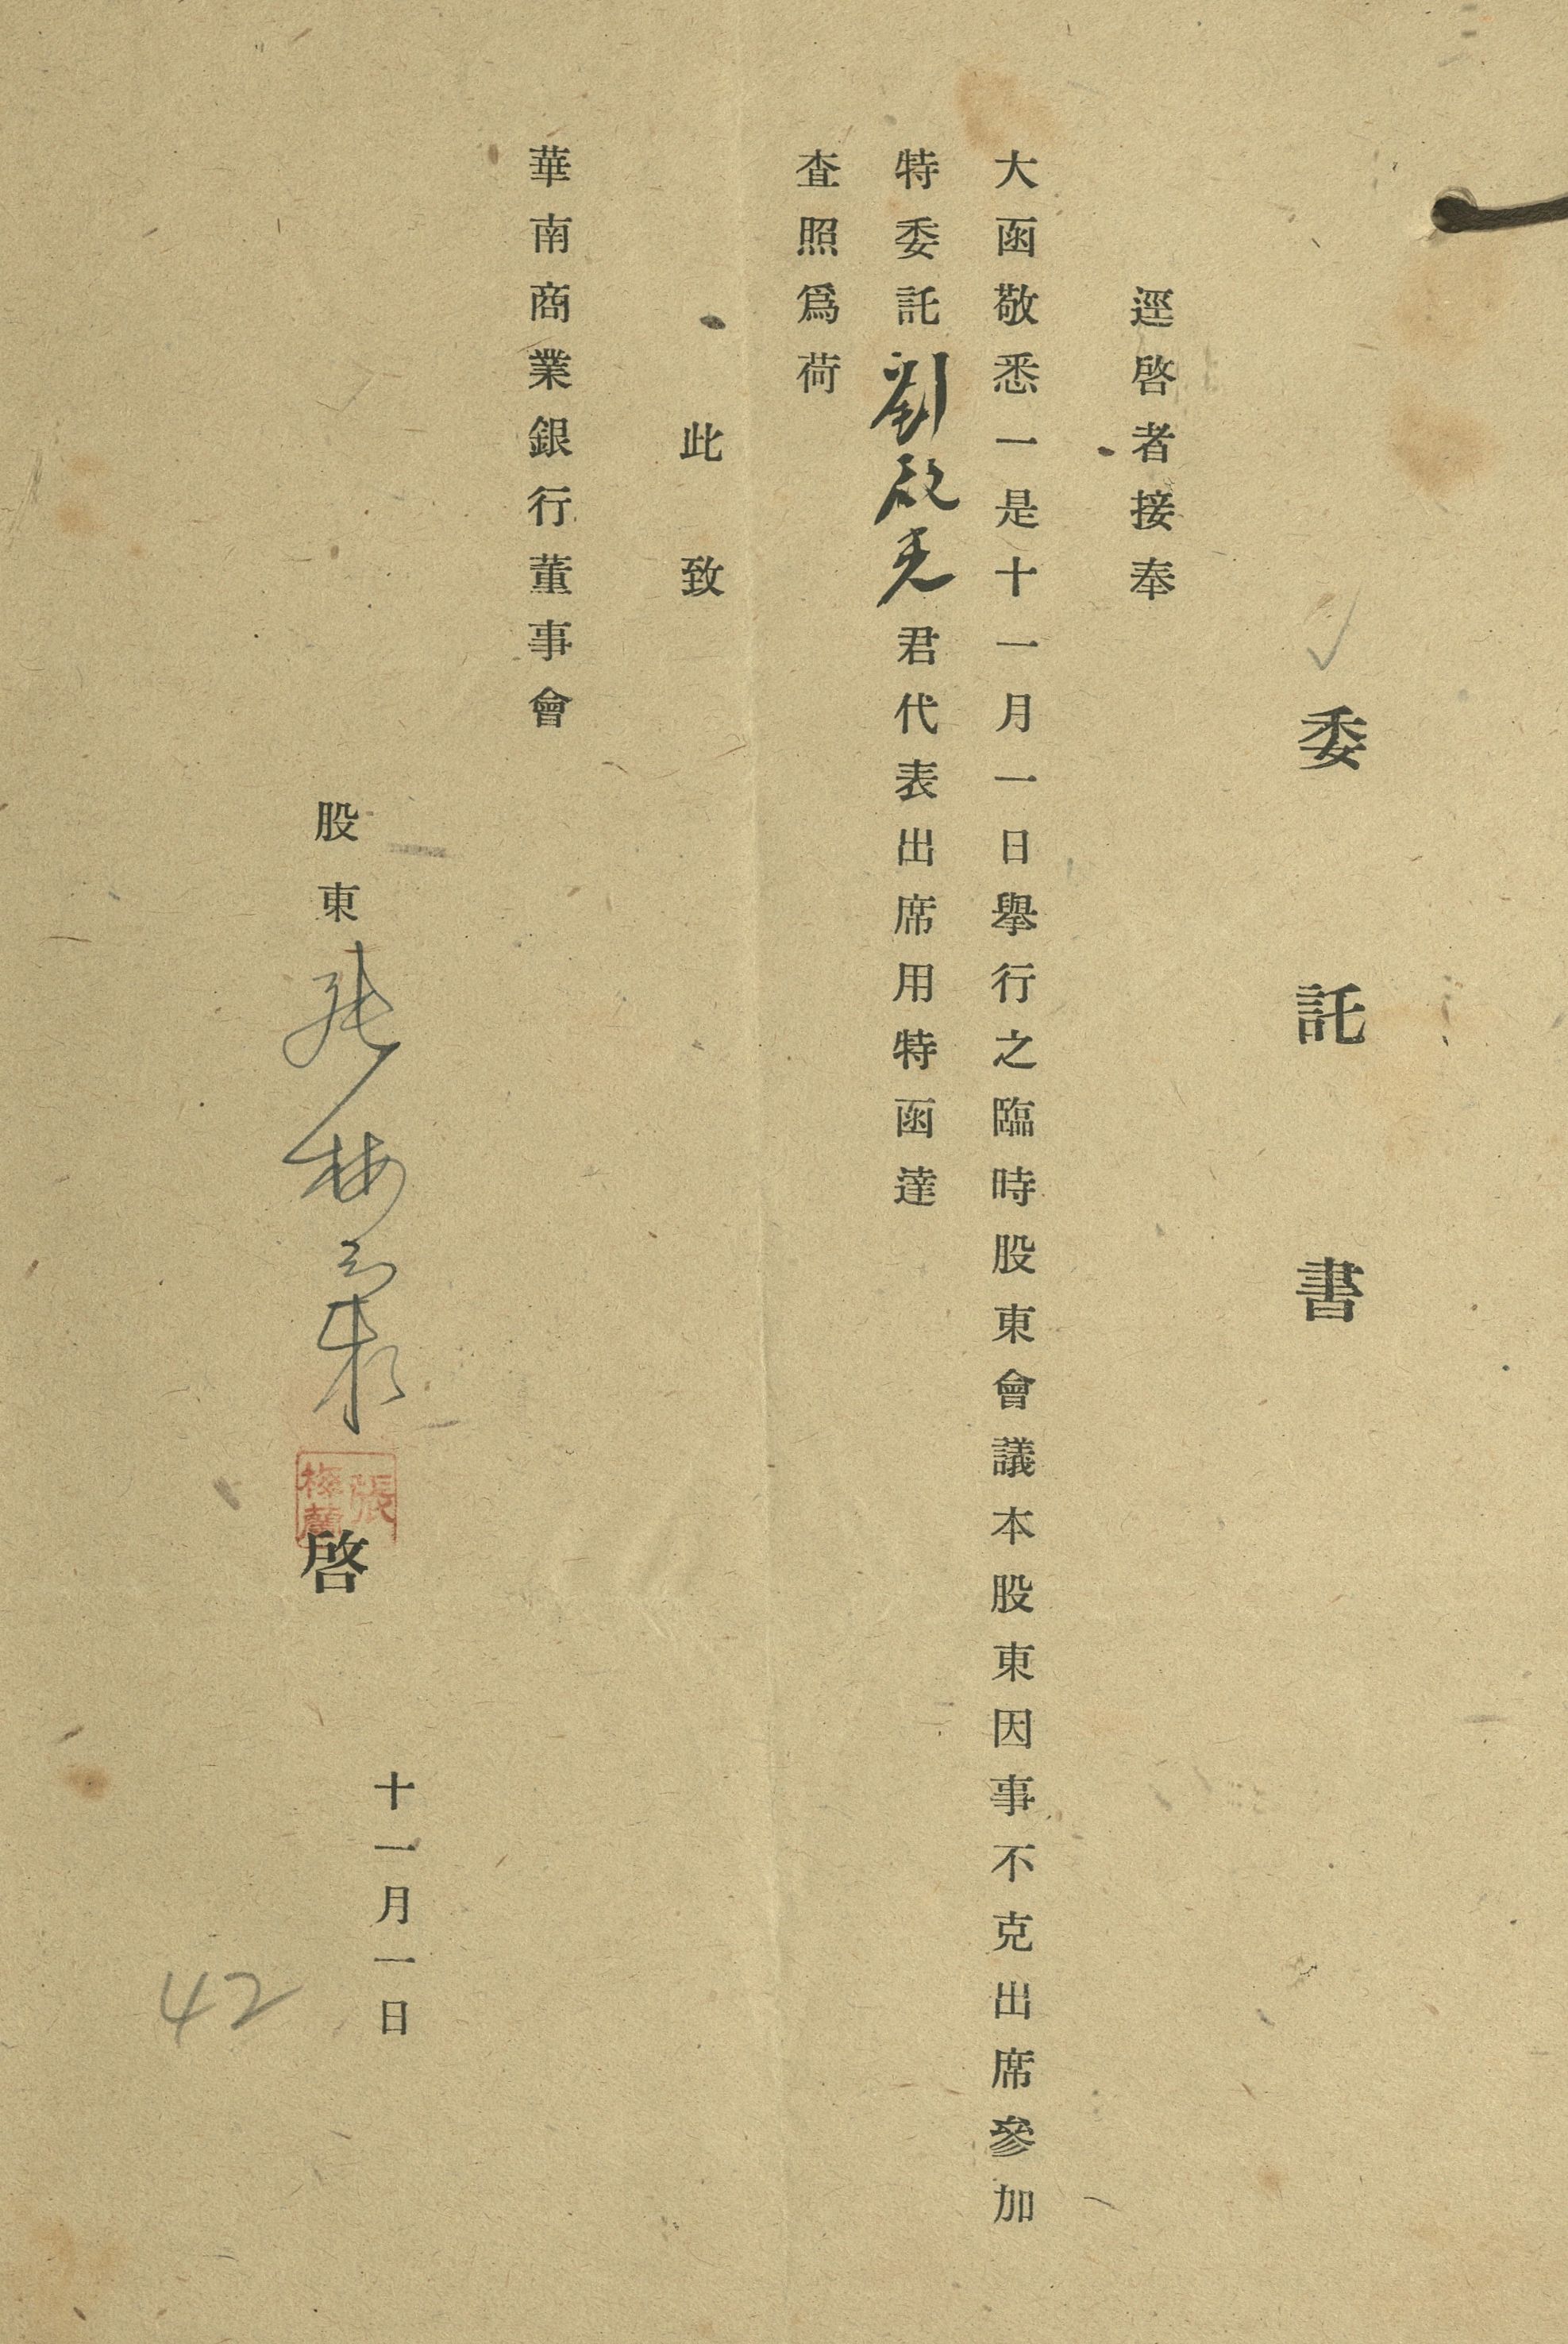 委託書
逕啓者接奉
大函敬悉一是十一月一日舉行之臨時股東會議本股東因事不克出席參加
特委託劉啟光君代表出席用特函達
査照爲荷
此致
華南商業銀行董事會
股東張梅蘭啓
張梅蘭
十一月一日
42